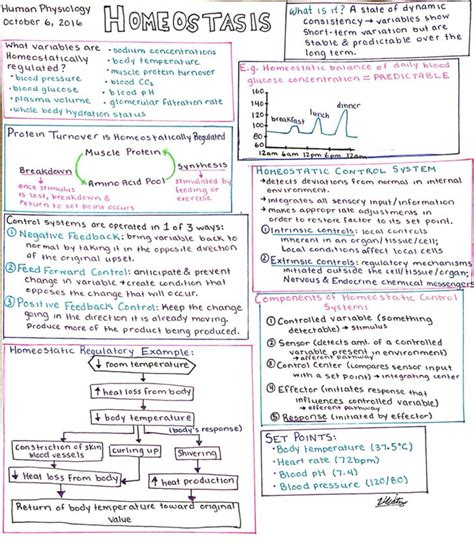 Human Physiology
October 6, 2016
HOMEOSTASIS
What is it? A state of dynamic
consistency → variables show
short-term variation but are
stable & predictable over the
long term.
What variables are
Homeostatically
regulated?
• blood pressure
• blood glucose
• plasma volume
• whole body hydration status
• sodium concentrations
• body temperature
• muscle protein turnover
• blood CO₂
• blood pH
• glomerular filtration rate
E.g. Homeostatic balance of daily blood
glucose concentration = PREDICTABLE
160
140
120
100
80
60
breakfast
lunch
dinner
12am 6am 12pm 6pm 12am
Protein Turnover is Homeostatically Regulated
Muscle Protein
Breakdown
once stimulus
is lost, breakdown &
return to set point occurs
Amino Acid Pool
Synthesis
stimulated by
feeding or
exercise
HOMEOSTATIC CONTROL SYSTEM
→ detects deviations from normal in internal
environment.
→ integrates all sensory input/information
→ makes appropriate adjustments in
order to restore factor to its set point.
① Intrinsic controls: local controls
inherent in an organ/tissue/cell;
Local conditions affect local cells
② Extrinsic controls: regulatory mechanisms
initiated outside the cell/tissue/organ;
Nervous & Endocrine chemical messengers
Control Systems are operated in 1 of 3 ways:
① Negative Feedback: bring variable back to
normal by taking it in the opposite direction
of the original upset.
② Feed Forward Control: anticipate & prevent
change in variable → create condition that
opposes the change that will occur.
③ Positive Feedback Control: Keep the change
going in the direction it is already moving.
Produce more of the product being produced.
Components of Homeostatic Control
Systems
① Controlled variable (something
detectable) → stimulus
② Sensor (detects amt. of a controlled
variable present in environment)
→ afferent pathway
③ Control Center (compares sensor input
with a set point) → integrating center
④ Effector (initiates response that
influences controlled variable)
→ efferent pathway
⑤ Response (initiated by effector)
Homeostatic Regulatory Example:
↓ room temperature
↑ heat loss from body
↓ body temperature
(body's response)
constriction of skin
blood vessels
curling up
Shivering
↓ Heat loss from body
↑ heat production
Return of body temperature toward original
value
SET POINTS:
• Body temperature (37.5°C)
• Heart rate (72bpm)
• Blood pH (7.4)
• Blood pressure (120/80)